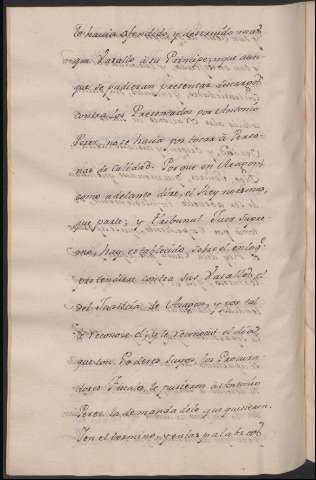 le havia ofendido, y deservido mas
que Vasallo à su Principe; y que aun
que se pudieran presentar descargos
contra los Presentados por Antonio
Perez, no se hacia por tocar à Perso-
nas de Calidad. Porque en Aragon,
como adelante dire, el Rey no es mas
que parte; y Tribunal Juez Supre-
mo, hay establecido, sobre el en lo q.
pretendiere contra sus Vasallos, el
del Justicia de Aragon, y por tal
le reconoce el, y le reconocio el dia
que con Poderes suyos los Procura-
dores Fiscales le pusieron à Antonio
Perez la demanda de lo que quisieron.
Y en el termino, y en las palabras